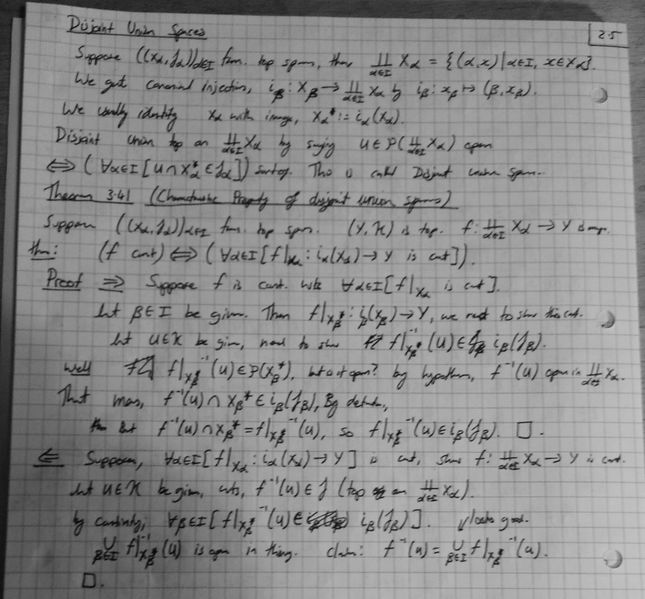 Disjoint Union Spaces
2.5
Suppose ((Xα, Jα))α∈I fam. top spaces, then ∐α∈I Xα = {(α,x) | α∈I, x∈Xα}.
We get canonical injections, iβ: Xβ → ∐α∈I Xα by iβ: xβ ↦ (β, xβ).
We usually identify Xα with image, Xα* := iα(Xα).
Disjoint union top on ∐α∈I Xα by saying U∈P(∐α∈I Xα) open
⟺ (∀α∈I [U∩Xα* ∈ Jα]) This is called Disjoint union space.
Theorem 3.41 (Characteristic Property of disjoint union spaces)
Suppose ((Xα, Jα))α∈I fam. top spaces. (Y, K) is top. f: ∐α∈I Xα → Y is map.
then: (f cont) ⟺ (∀α∈I [f|Xα : iα(Xα) → Y is cont]).
Proof ⟹ Suppose f is cont. wts ∀α∈I [f|Xα is cont].
Let β∈I be given. Then f|Xβ* : iβ(Xβ) → Y, we need to show this cont.
Let U∈K be given, need to show f|Xβ*⁻¹(U) ∈ iβ(Jβ).
Well f|Xβ*⁻¹(U) ∈ P(Xβ*), but is it open? by hypothesis, f⁻¹(U) open in ∐α∈I Xα.
That means, f⁻¹(U) ∩ Xβ* ∈ iβ(Jβ), By definition,
but f⁻¹(U) ∩ Xβ* = f|Xβ*⁻¹(U), so f|Xβ*⁻¹(U) ∈ iβ(Jβ). □.
⟸ Suppose, ∀α∈I [f|Xα : iα(Xα) → Y] is cont, show f: ∐α∈I Xα → Y is cont.
Let U∈K be given, wts, f⁻¹(U) ∈ J (top on ∐α∈I Xα).
by continuity, ∀β∈I [f|Xβ*⁻¹(U) ∈ iβ(Jβ)]. looks good.
∪β∈I f|Xβ*⁻¹(U) is open in thing. claim: f⁻¹(U) = ∪β∈I f|Xβ*⁻¹(U).
□.